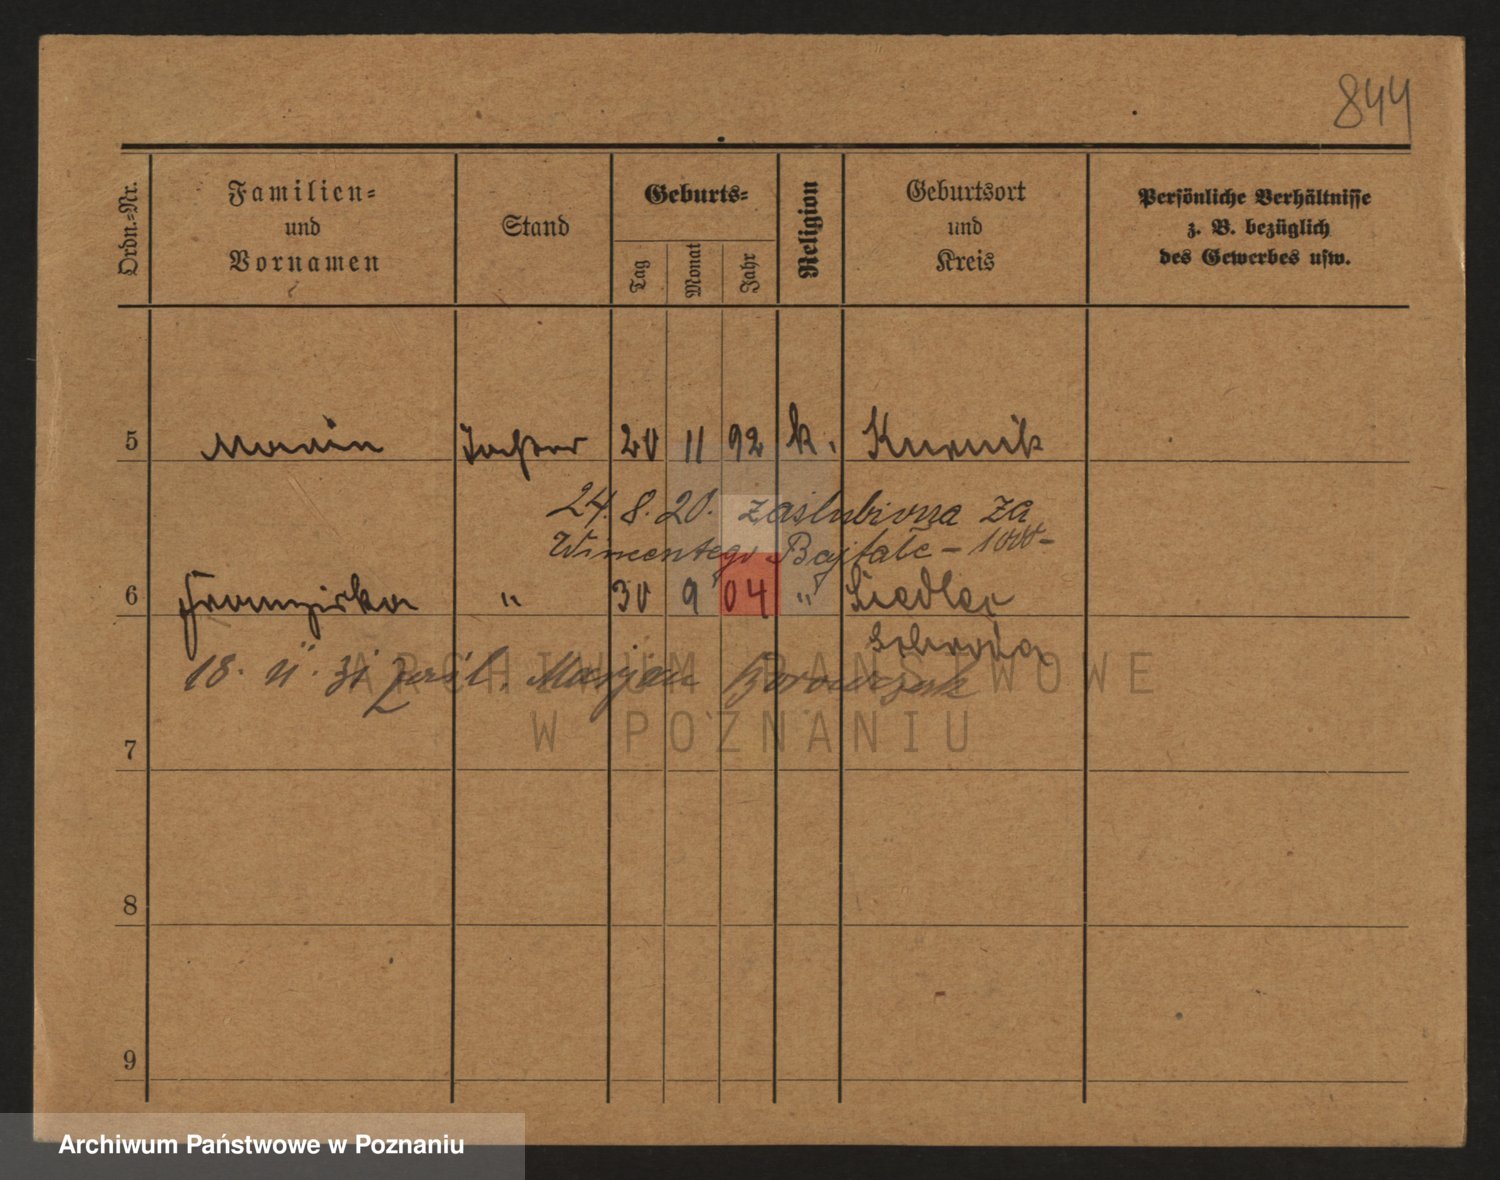 844
Ordn.-Nr.
Familien-
und
Vornamen
Stand
Geburts-
Tag
Monat
Jahr
Religion
Geburtsort
und
Kreis
Persönliche Verhältnisse
z. B. bezüglich
des Gewerbes usw.
5 Tochter 20 11 92 k. Kurnik
24. 8. 20. zaślubiona za
Wincentego
6 Franziska " 30 9 04 "
18. 11. 31 zaśl. Marjan
7
8
9
ARCHIWUM PAŃSTWOWE
W POZNANIU
Archiwum Państwowe w Poznaniu